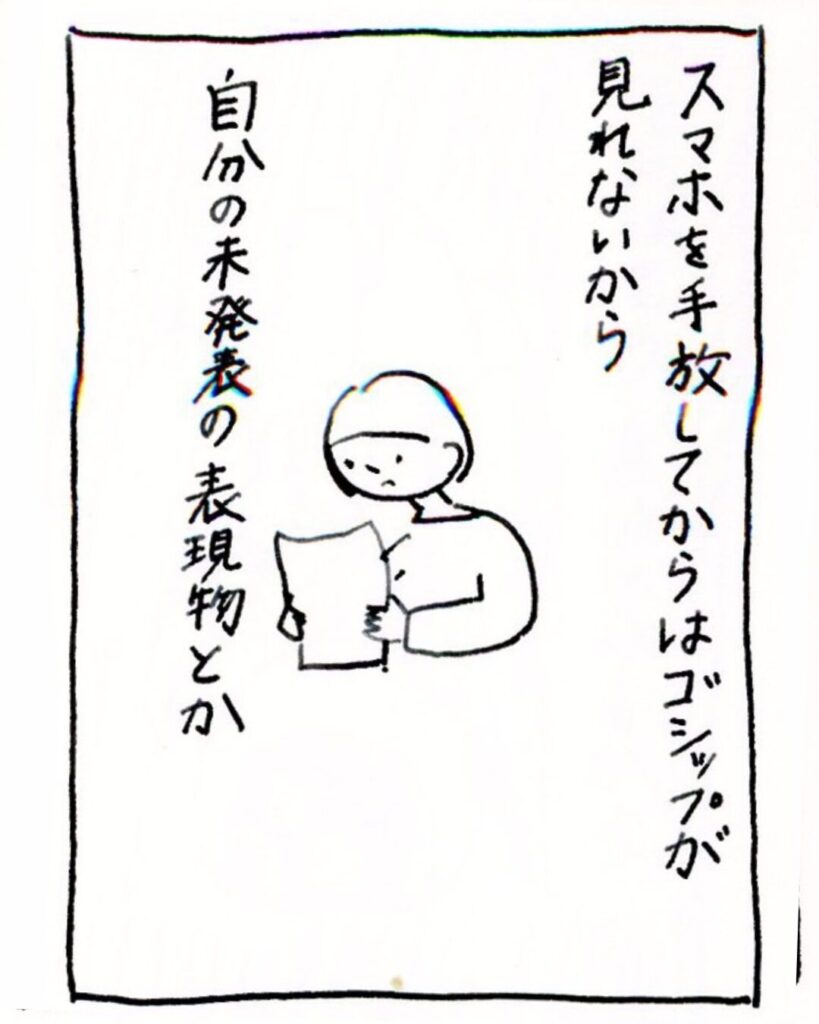 スマホを手放してからはゴシップが
見れないから
自分の未発表の表現物とか